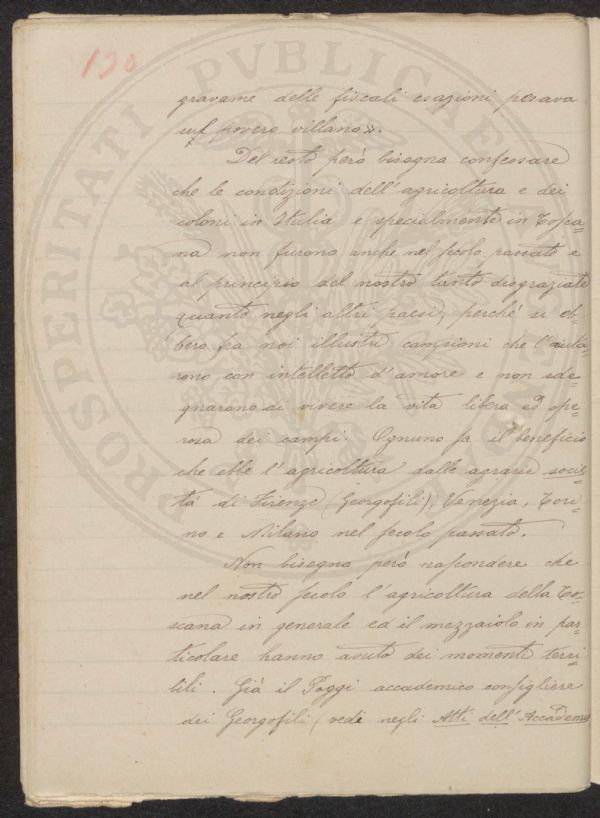 130
gravame delle fiscali esazioni pesava
sul povero villano».
Del resto però bisogna confessare
che le condizioni dell'agricoltura e dei
coloni in Italia e specialmente in Tosca-
na non furono anche nel secolo passato e
al principio del nostro tanto disgraziate
quanto negli altri paesi, perchè si eb-
bero fra noi illustri campioni che l'aiuta-
rono con intelletto d'amore e non sde-
gnarono di vivere la vita libera ed ope-
rosa dei campi. Ognuno sa il beneficio
che ebbe l'agricoltura dalle agrarie socie-
tà di Firenze (Georgofili), Venezia, Tori-
no e Milano nel secolo passato.
Non bisogna però nascondere che
nel nostro secolo l'agricoltura della To-
scana in generale ed il mezzaiolo in par-
ticolare hanno avuto dei momenti terri-
bili. Già il Poggi accademico consigliere
dei Georgofili (vedi negli Atti dell'Accademia
PROSPERITATI PVBLICAE AVGENDAE